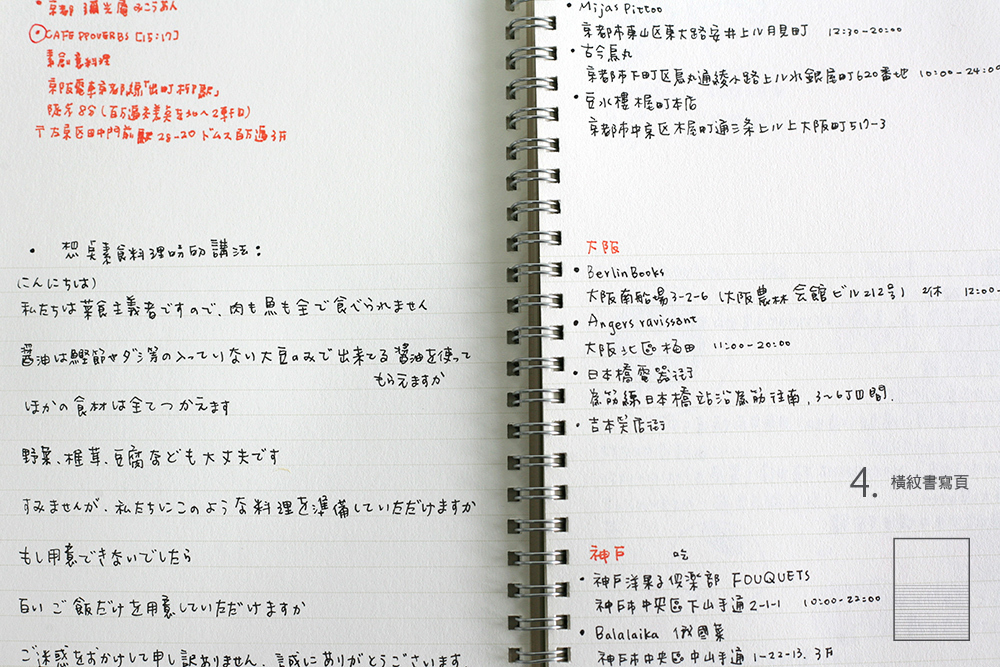 京都 彌光庵 みこうあん
CAFE PROVERBS [15:17]
素創意料理
京阪電車京都線「出町柳駅」
〒左京区田中門前町28-20 ドムス百万遍3F
• 想與素食料理吃的講法：
(にんにちは)
私たちは菜食主義者ですので、肉も魚も全で食べられません
醤油は鰹節やダシ等の入っていない大豆のみで出来てる醤油を使って
もらえますか
ほかの食材は全てつかえます
野菜、椎茸、豆腐なども大丈夫です
すみませんが、私たちにこのような料理を準備していただけますか
もし用意できないでしたら
白いご飯だけを用意していただけますか
ご迷惑をおかけして申し訳ありません、誠にありがとうございます。
• Mijas Pittoo
京都市東山区東大路安井上ル月見町 12:30-20:00
• 古今烏丸
京都市下町区烏丸通綾小路上ル水銀屋町620番地 10:00-24:00
• 豆水樓 木屋町本店
京都市中京区木屋町通三条上ル上大阪町517-3
大阪
• Berlin Books
大阪南船場3-2-6 (大阪農林会館ビル212号) 2休 12:00-
• Angers ravissant
大阪北區梅田 11:00-20:00
• 日本橋電器街
筋線日本橋站沿筋往南,3~6丁目間.
• 吉本笑店街
4. 橫紋書寫頁
神戶 吃
• 神戶洋菓子俱楽部 FOUQUETS
神戶市中央區下山手通2-1-1 10:00-22:00
• Balalaika 俄國菜
神戶市中央区中山手通1-22-13. 3F